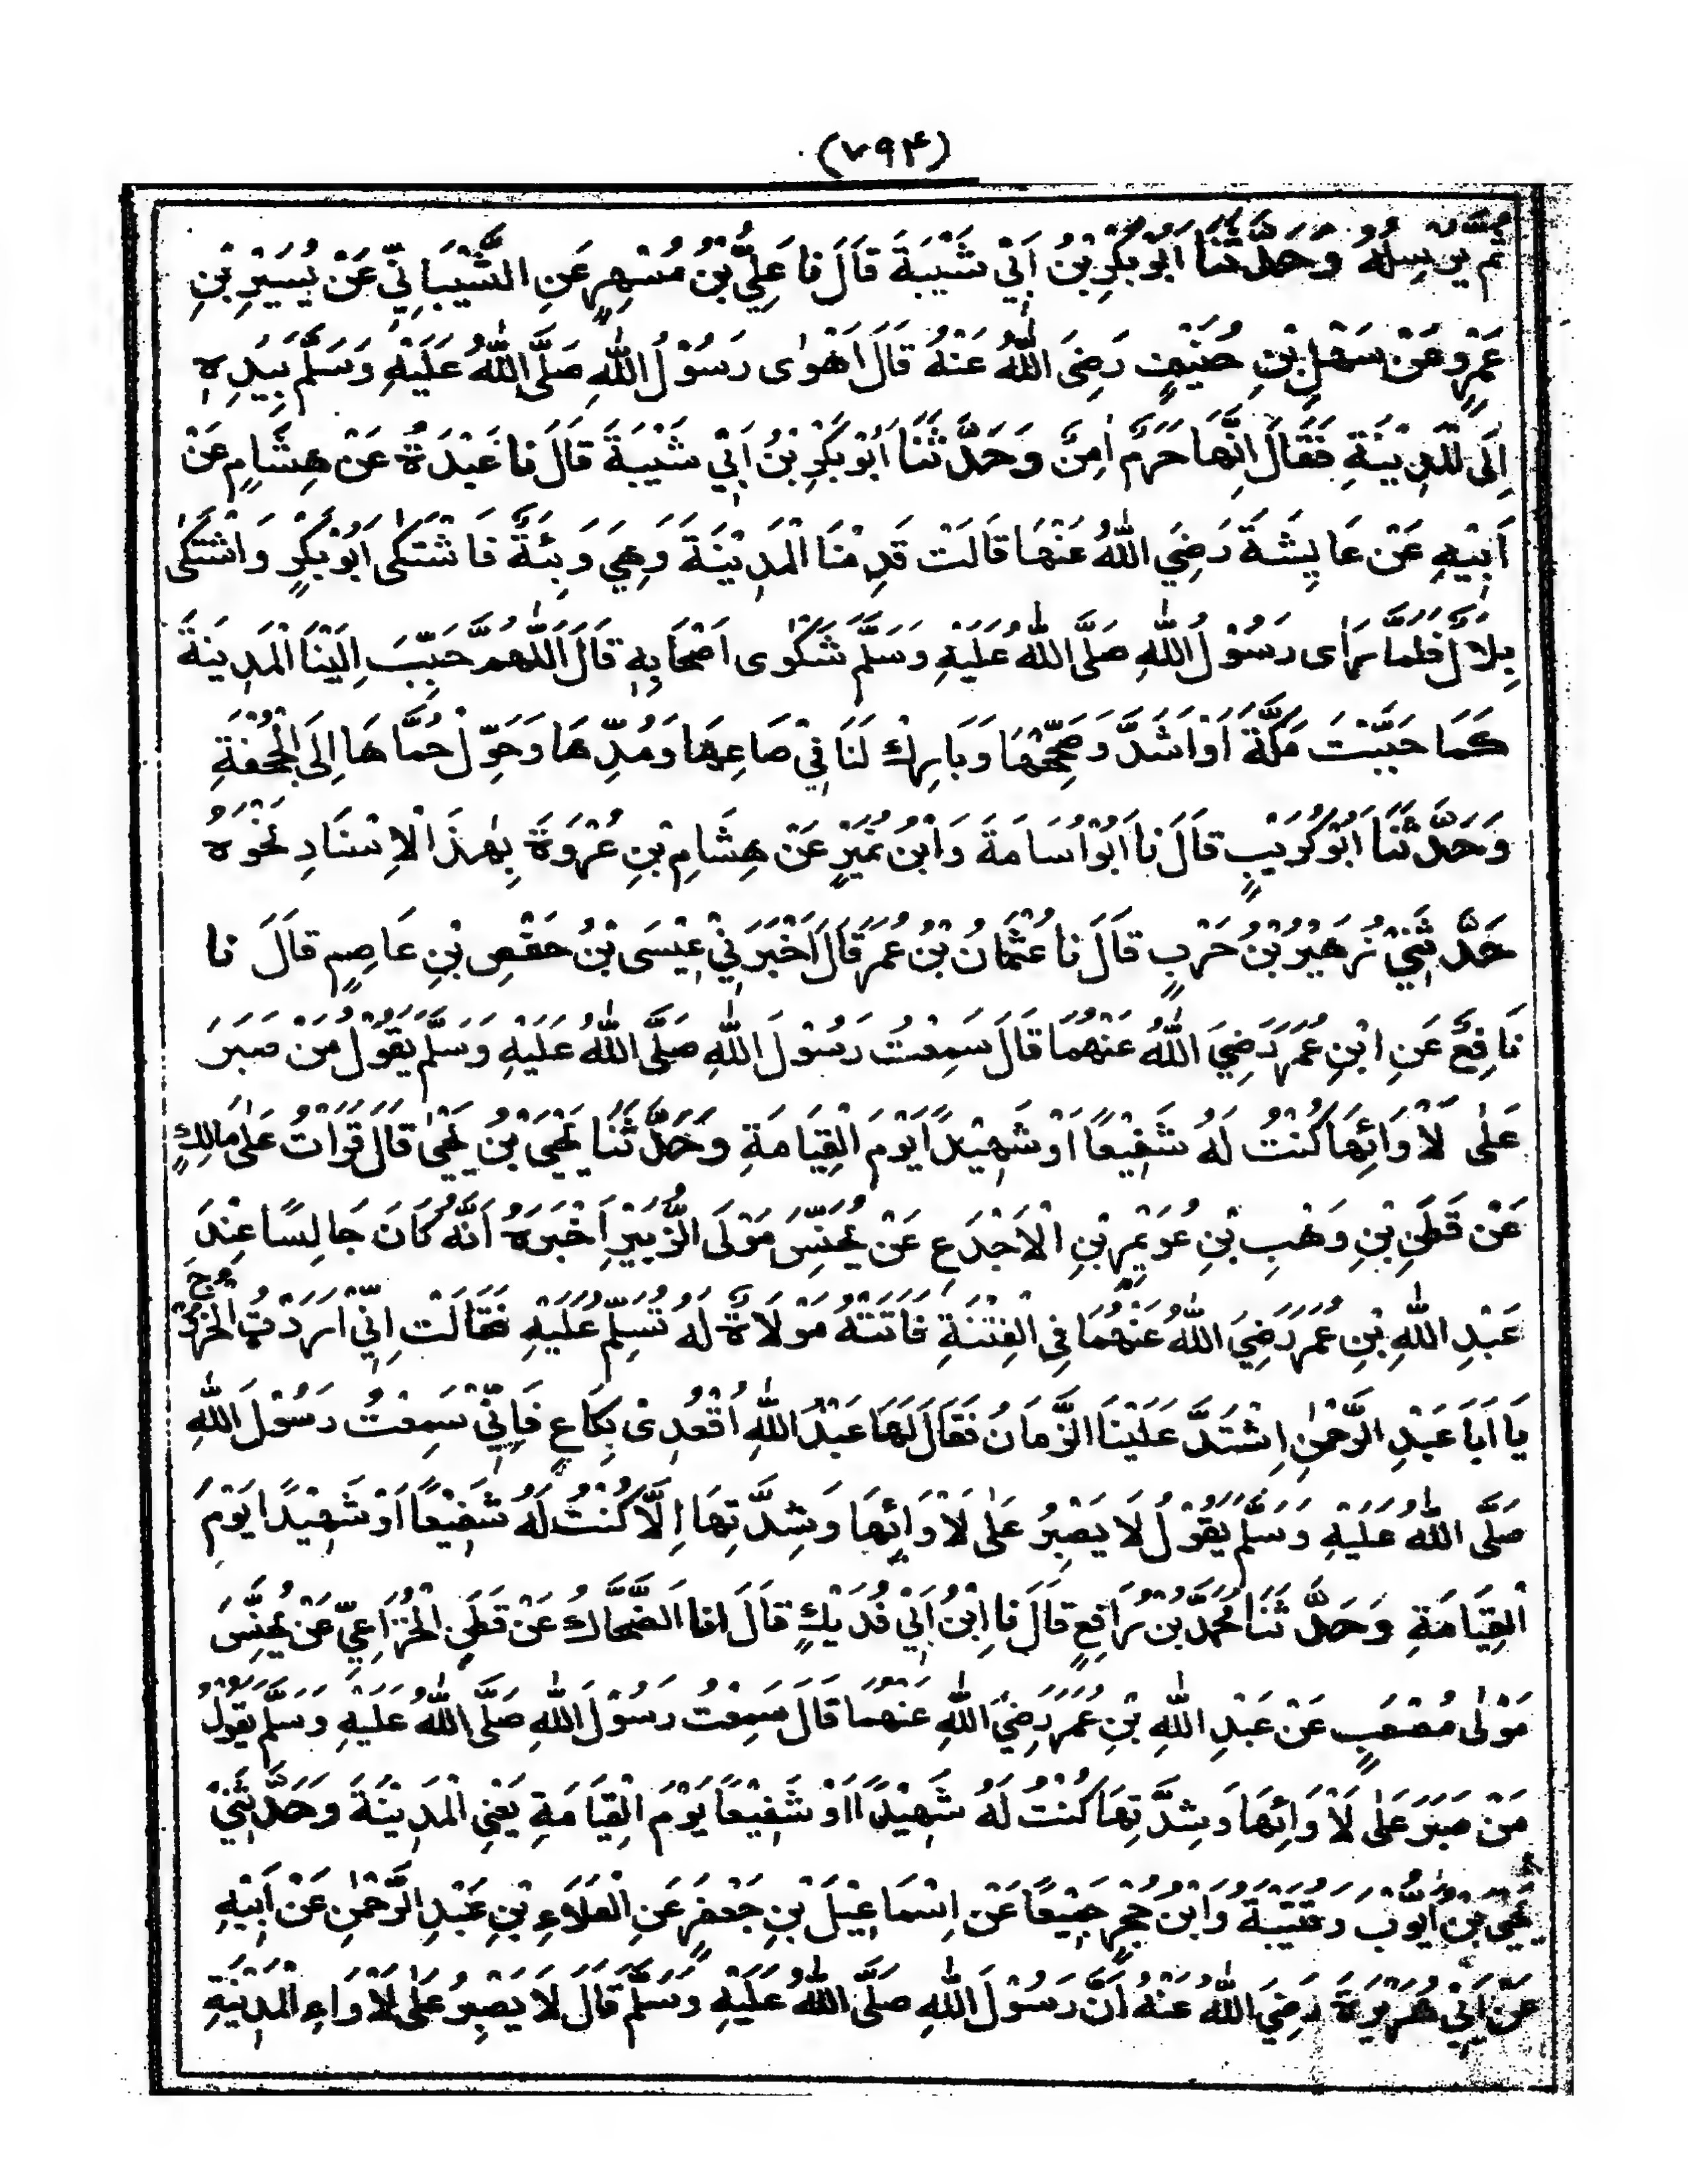 (۷۹۴)
ثُمَّ يُرْسِلُهُ وَحَدَّثَنَا اَبُوْبَكْرِ بْنُ اَبِيْ شَيْبَةَ قَالَ نَا عَلِيُّ بْنُ مُسْهِرٍ عَنِ الشَّيْبَانِيِّ عَنْ يُسَيْرِ بْنِ
عَمْرٍو عَنْ سَهْلِ بْنِ حُنَيْفٍ رَضِىَ اللّٰهُ عَنْهُ قَالَ اَهْوٰى رَسُوْلُ اللّٰهِ صَلَّى اللّٰهُ عَلَيْهِ وَسَلَّمَ بِيَدِهٖ
اِلَى الْمَدِيْنَةِ فَقَالَ اِنَّهَا حَرَمٌ اٰمِنٌ وَحَدَّثَنَا اَبُوْبَكْرِ بْنُ اَبِيْ شَيْبَةَ قَالَ نَا عَبْدَةُ عَنْ هِشَامٍ عَنْ
اَبِيْهِ عَنْ عَايِشَةَ رَضِيَ اللّٰهُ عَنْهَا قَالَتْ قَدِمْنَا الْمَدِيْنَةَ وَهِيَ وَبِئَةٌ فَاشْتَكٰى اَبُوْبَكْرٍ وَاشْتَكٰى
بِلَالٌ فَلَمَّا رَاٰى رَسُوْلُ اللّٰهِ صَلَّى اللّٰهُ عَلَيْهِ وَسَلَّمَ شَكْوٰى اَصْحَابِهٖ قَالَ اَللّٰهُمَّ حَبِّبْ اِلَيْنَا الْمَدِيْنَةَ
كَمَا حَبَّبْتَ مَكَّةَ اَوْ اَشَدَّ وَصَحِّحْهَا وَبَارِكْ لَنَا فِيْ صَاعِهَا وَمُدِّهَا وَحَوِّلْ حُمَّاهَا اِلَى الْجُحْفَةِ
وَحَدَّثَنَا اَبُوْكُرَيْبٍ قَالَ نَا اَبُوْ اُسَامَةَ وَابْنُ نُمَيْرٍ عَنْ هِشَامِ بْنِ عُرْوَةَ بِهٰذَا الْاِسْنَادِ نَحْوَهُ
حَدَّثَنِيْ زُهَيْرُ بْنُ حَرْبٍ قَالَ نَا عُثْمَانُ بْنُ عُمَرَ قَالَ اَخْبَرَنِيْ عِيْسَى بْنُ حَفْصِ بْنِ عَاصِمٍ قَالَ نَا
نَافِعٌ عَنِ ابْنِ عُمَرَ رَضِيَ اللّٰهُ عَنْهُمَا قَالَ سَمِعْتُ رَسُوْلَ اللّٰهِ صَلَّى اللّٰهُ عَلَيْهِ وَسَلَّمَ يَقُوْلُ مَنْ صَبَرَ
عَلٰى لَاْوَائِهَا كُنْتُ لَهُ شَفِيْعًا اَوْ شَهِيْدًا يَوْمَ الْقِيَامَةِ وَحَدَّثَنَا يَحْيَى بْنُ يَحْيٰى قَالَ قَرَاْتُ عَلٰى مَالِكٍ
عَنْ قَطَنِ بْنِ وَهْبِ بْنِ عُوَيْمِرِ بْنِ الْاَجْدَعِ عَنْ يُحَنِّسَ مَوْلَى الزُّبَيْرِ اَخْبَرَهُ اَنَّهُ كَانَ جَالِسًا عِنْدَ
عَبْدِ اللّٰهِ بْنِ عُمَرَ رَضِيَ اللّٰهُ عَنْهُمَا فِى الْفِتْنَةِ فَاَتَتْهُ مَوْلَاةٌ لَهُ تُسَلِّمُ عَلَيْهِ فَقَالَتْ اِنِّيْ اَرَدْتُ الْخُرُوْجَ
يَا اَبَا عَبْدِ الرَّحْمٰنِ اِشْتَدَّ عَلَيْنَا الزَّمَانُ فَقَالَ لَهَا عَبْدُ اللّٰهِ اُقْعُدِىْ لَكَاعِ فَاِنِّيْ سَمِعْتُ رَسُوْلَ اللّٰهِ
صَلَّى اللّٰهُ عَلَيْهِ وَسَلَّمَ يَقُوْلُ لَا يَصْبِرُ عَلٰى لَاْوَائِهَا وَشِدَّتِهَا اِلَّا كُنْتُ لَهُ شَفِيْعًا اَوْ شَهِيْدًا يَوْمَ
الْقِيَامَةِ وَحَدَّثَنَا مُحَمَّدُ بْنُ رَافِعٍ قَالَ نَا ابْنُ اَبِيْ فُدَيْكٍ قَالَ اَنَا الضَّحَّاكُ عَنْ قَطَنِ الْخُزَاعِيِّ عَنْ يُحَنِّسَ
مَوْلٰى مُصْعَبٍ عَنْ عَبْدِ اللّٰهِ بْنِ عُمَرَ رَضِيَ اللّٰهُ عَنْهُمَا قَالَ سَمِعْتُ رَسُوْلَ اللّٰهِ صَلَّى اللّٰهُ عَلَيْهِ وَسَلَّمَ يَقُوْلُ
مَنْ صَبَرَ عَلٰى لَاْوَائِهَا وَشِدَّتِهَا كُنْتُ لَهُ شَهِيْدًا اَوْ شَفِيْعًا يَوْمَ الْقِيَامَةِ يَعْنِى الْمَدِيْنَةَ وَحَدَّثَنِيْ
يَحْيَى بْنُ اَيُّوْبَ وَقُتَيْبَةُ وَابْنُ حُجْرٍ جَمِيْعًا عَنْ اِسْمَاعِيْلَ بْنِ جَعْفَرٍ عَنِ الْعَلَاءِ بْنِ عَبْدِ الرَّحْمٰنِ عَنْ اَبِيْهِ
عَنْ اَبِيْ هُرَيْرَةَ رَضِيَ اللّٰهُ عَنْهُ اَنَّ رَسُوْلَ اللّٰهِ صَلَّى اللّٰهُ عَلَيْهِ وَسَلَّمَ قَالَ لَا يَصْبِرُ عَلٰى لَاْوَاءِ الْمَدِيْنَةِ